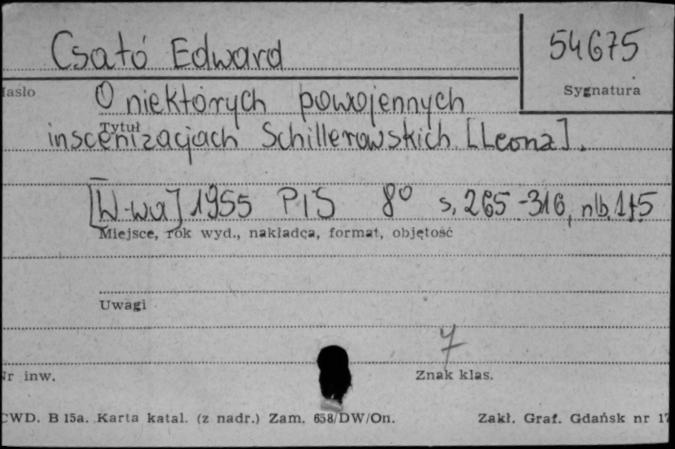 Csató Edward
54675
Sygnatura
Hasło
O niektórych powojennych
Tytuł
inscenizacjach Schillerowskich [Leona].
[W-wa] 1955 PIS 8º s, 265-316, nlb, 1+5
Miejsce, rok wyd., nakładca, format, objętość
Uwagi
7
Nr inw.
Znak klas.
CWD. B 15a. Karta katal. (z nadr.) Zam. 658/DW/On.
Zakł. Graf. Gdańsk nr 17